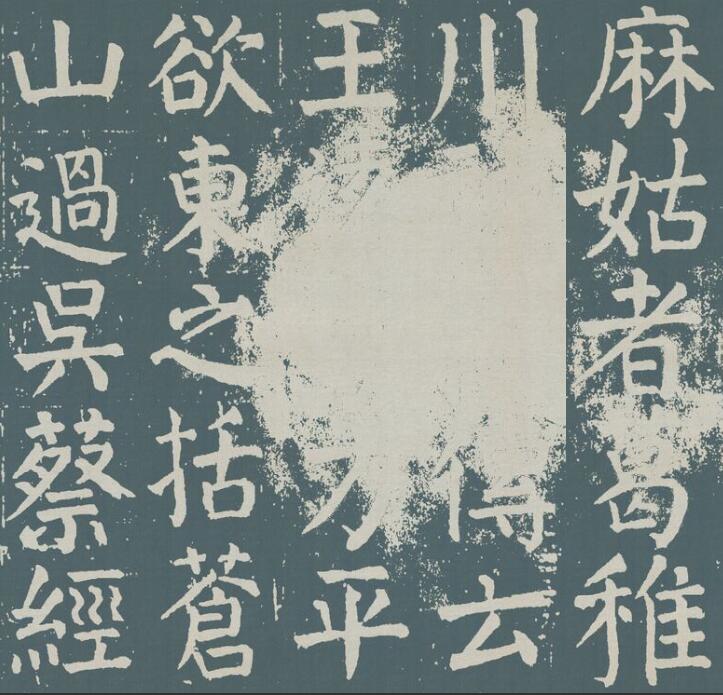 麻姑者葛稚
川傳云
王方平
欲東之括蒼
山過吳蔡經